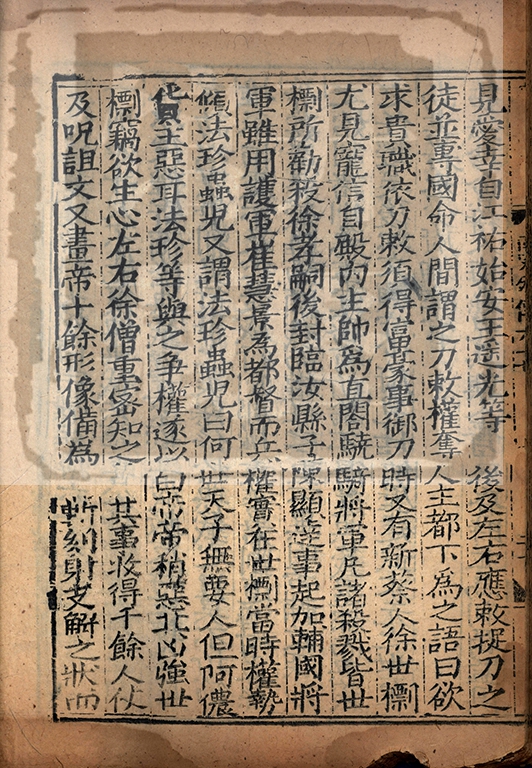 見愛幸自江祐始安王遥光等後及左右應敕捉刀之
徒並專國命人間謂之刀敕權奪人主都下為之語曰欲
求貴職依刀敕須得富豪事御刀時又有新蔡人徐世檦
尤見寵信自殿内主帥為直閣驍騎將軍凡諸殺戮皆世
檦所勸殺徐孝嗣後封臨汝縣子陳顯達事起加輔國將
軍雖用護軍崔慧景為都督而兵權實在世檦當時權勢
傾法珍蟲兒又謂法珍蟲兒曰何世天子無要人但阿儂
貨主惡耳法珍等與之爭權遂以白帝帝稍惡其凶強世
檦竊欲生心左右徐僧重密知之其事收得千餘人仗
及呪詛文又畫帝十餘形像備為斬刻射支解之狀而